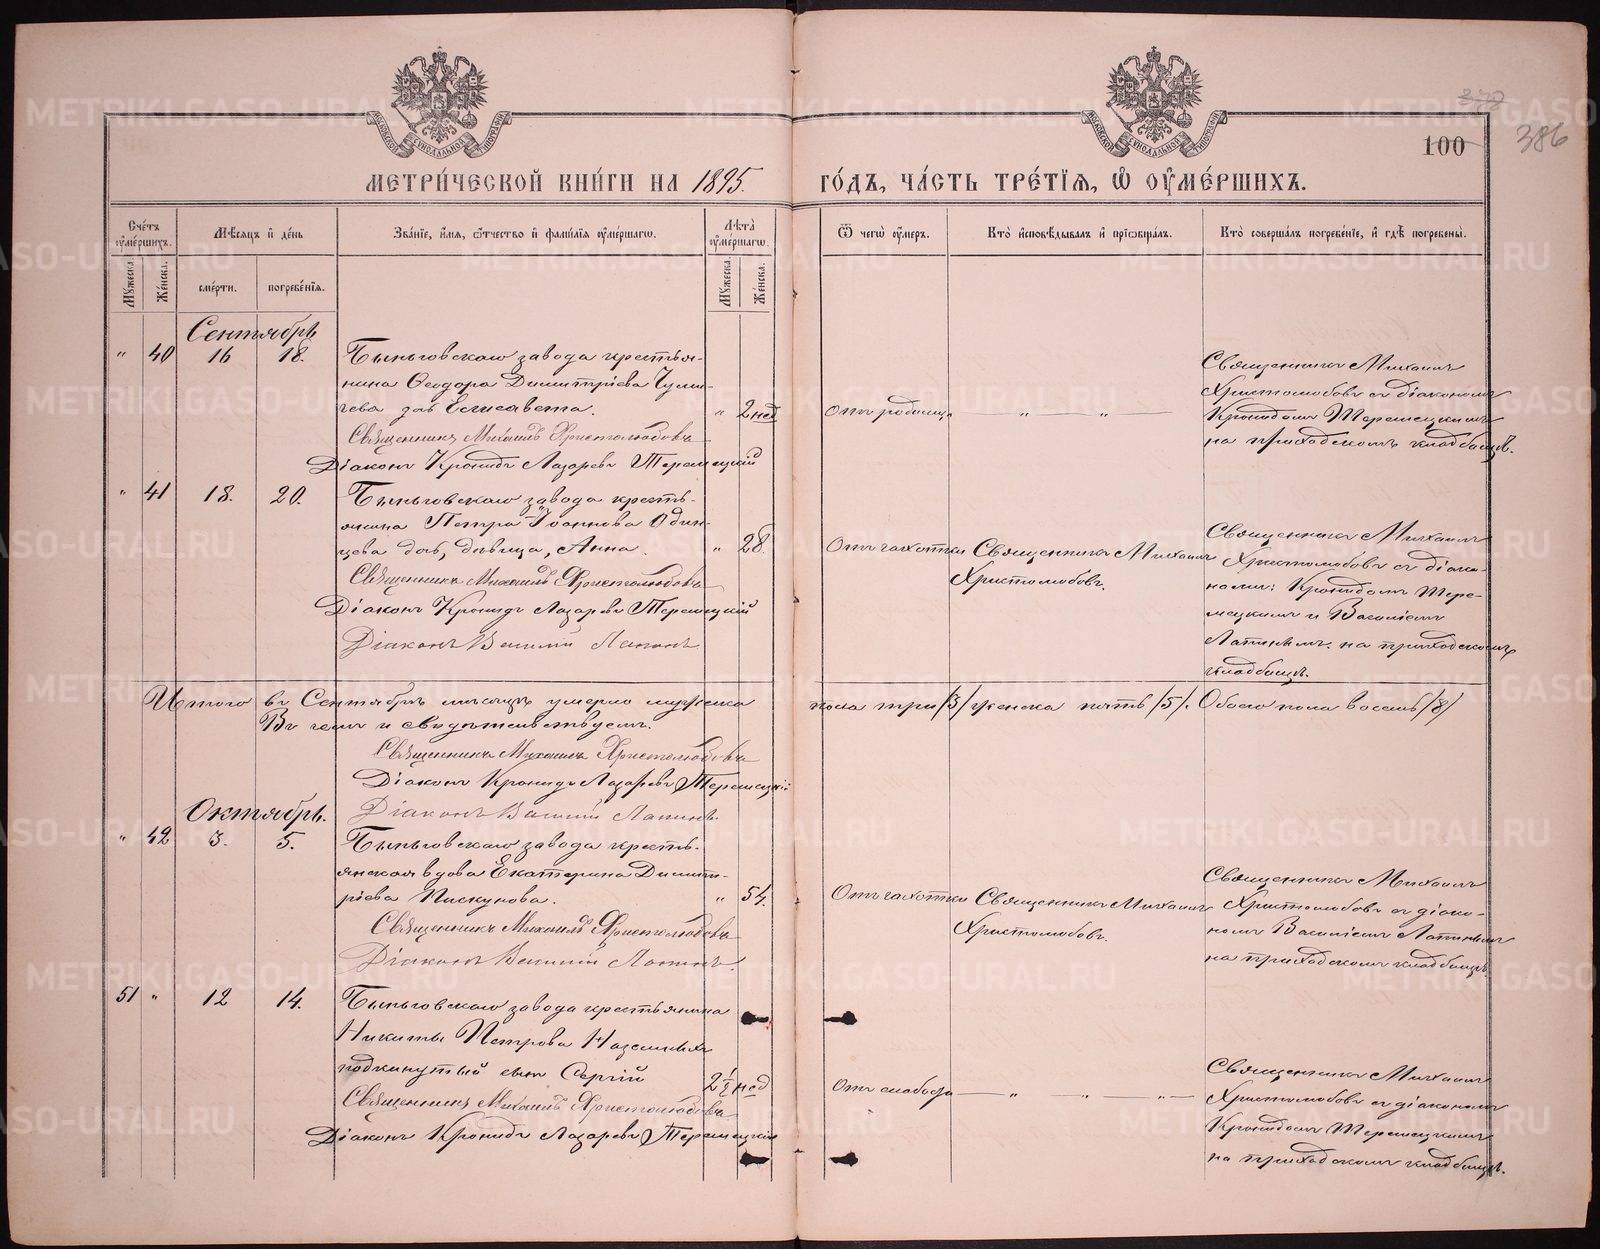 377
386
100
МОСКОВСКОЙ СѴНОДАЛЬНОЙ ТИПОГРАФІИ
МОСКОВСКОЙ СѴНОДАЛЬНОЙ ТИПОГРАФІИ
МЕТРИ́ЧЕСКОЙ КНИ́ГИ НА 1895.
ГО́ДЪ, ЧА́СТЬ ТРЕ́ТІѦ, Ѡ҆ ОУ҆МЕ́РШИХЪ.
Сче́тъ оу҆ме́ршихъ.
Мꙋ́жеска.
Же́нска.
Мѣ́сяцъ и҆ де́нь
сме́рти.
погребе́нїѧ.
Зва́нїе, и҆́мѧ, ѻ҆́тчество и҆ фами́лїѧ оу҆ме́ршагѡ.
Лѣ́та оу҆ме́ршагѡ.
Мꙋ́жеска.
Же́нска.
Ѿ чегѡ̀ оу҆́меръ.
Кто̀ и҆сповѣ́дывалъ и҆ прїѡбща́лъ.
Кто̀ соверша́лъ погребе́нїе, и҆ гдѣ̀ погребены̀.
Сентябрь
" 40 16 18. Быньговскаго завода крестья-
нина Ѳеодора Димитріева Чуми-
чева дочь Елисавета. " 2 нед
Священникъ Михаилъ Христолюбовъ
Діаконъ Кронидъ Лазаревъ Теремецкій
Отъ родимца — " — " —
Священникъ Михаилъ
Христолюбовъ съ діакономъ
Кронидомъ Теремецкимъ
на приходскомъ кладбищѣ.
" 41 18. 20. Быньговскаго завода кресть-
янина Петра Іоаннова Один-
цева дочь, дѣвица, Анна. " 28.
Священникъ Михаилъ Христолюбовъ
Діаконъ Кронидъ Лазаревъ Теремецкій
Діаконъ Василій Лапинъ
Отъ чахотки
Священникъ Михаилъ
Христолюбовъ.
Священникъ Михаилъ
Христолюбовъ съ діако-
нами: Кронидомъ Тере-
мецкимъ и Василіемъ
Лапинымъ на приходскомъ
кладбищѣ.
Итого въ Сентябрѣ мѣсяцѣ умерло мужеска пола три /3/ женска пять /5/. Обоего пола восемь /8/
Въ чемъ и свидѣтельствуемъ.
Священникъ Михаилъ Христолюбовъ
Діаконъ Кронидъ Лазаревъ Теремецкій
Діаконъ Василій Лапинъ.
Октябрь.
" 42 3. 5. Быньговскаго завода кресть-
янская вдова Екатерина Димит-
ріева Пискунова. " 54.
Священникъ Михаилъ Христолюбовъ
Діаконъ Василій Лапинъ.
Отъ чахотки
Священникъ Михаилъ
Христолюбовъ.
Священникъ Михаилъ
Христолюбовъ съ діако-
номъ Василіемъ Лапинымъ
на приходскомъ кладбищѣ.
51 " 12 14. Быньговскаго завода крестьянина
Никиты Петрова Наземныхъ
подкинутый сынъ Сергій 2½ нед
Священникъ Михаилъ Христолюбовъ
Діаконъ Кронидъ Лазаревъ Теремецкій
Отъ слабости — " — " — " —
Священникъ Михаилъ
Христолюбовъ съ діакономъ
Кронидомъ Теремецкимъ
на приходскомъ кладбищѣ.
METRIKI.GASO-URAL.RU